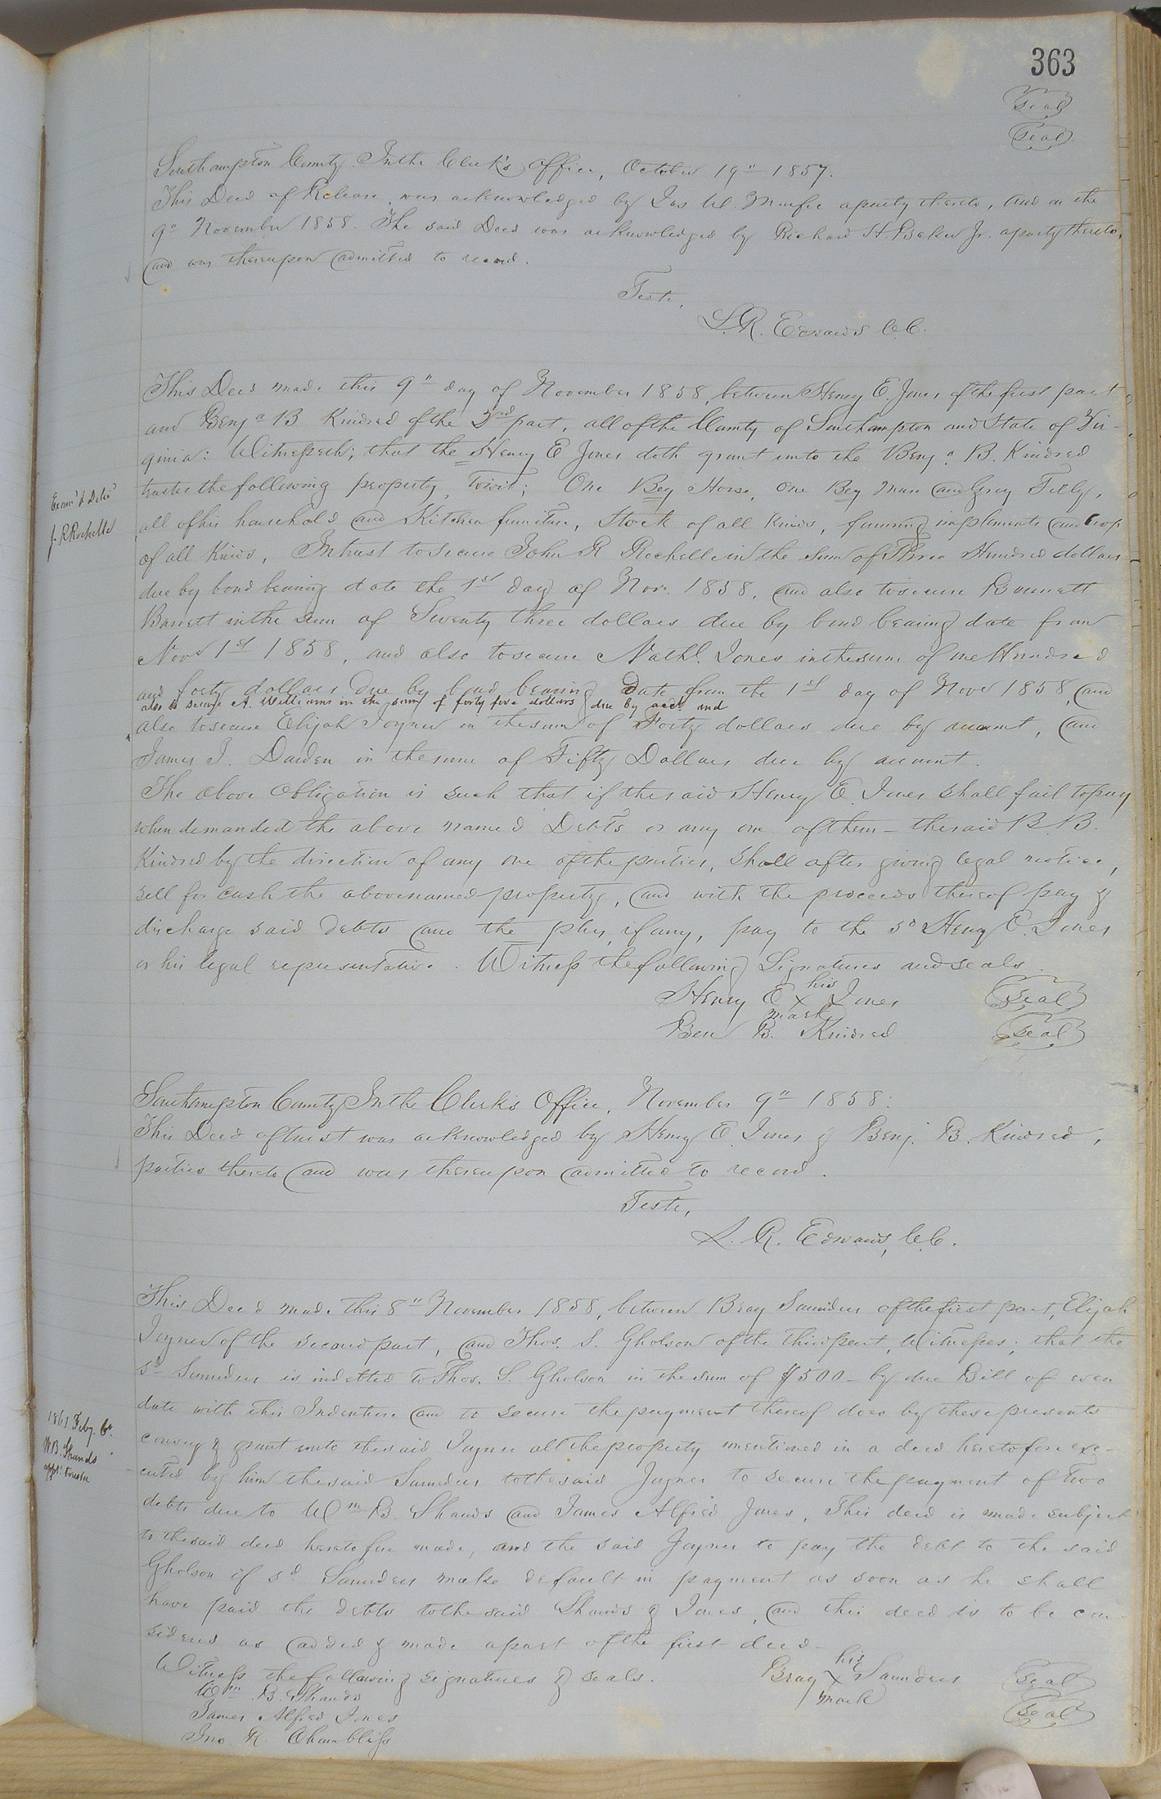 363
Seal
Seal
Southampton County. In the Clerk's Office, October 19th 1857.
This Deed of Release was acknowledged by Jas W. Murfee a party thereto, and on the
9th November 1858. The said Deed was acknowledged by Richard H. Baker Jr. a party thereto,
and was thereupon admitted to record.
Teste,
L. R. Edwards C.C.
This Deed made this 9th day of November 1858, between Henry E. Jones of the first part
and Benja B Kindred of the 2nd part, all of the County of Southampton and State of Vir-
ginia: Witnesseth; that the Henry E Jones doth grant unto the Benja B. Kindred
trustee the following property, Towit; One Bay Horse, one Bay Mare and Grey Filly,
Exam'd & Deld
J. R. Rochelle
all of his household and Kitchen furniture, Stock of all Kinds, farming implements and Crops
of all Kinds, In trust to secure John R Rochelle in the Sum of Three Hundred dollars
due by bond bearing date the 1st day of Nov. 1858, and also to secure Bennett
Barrett in the sum of Seventy three dollars due by bond bearing date from
Novr 1st 1858, and also to secure Nathl. Jones in the sum of one Hundred
and forty dollars due by bond bearing Date from the 1st day of Novr 1858, and
also to secure A. Williams in the sum of forty five dollars due by acct and
also to secure Elijah Joyner in the sum of Forty dollars due by account, and
James J. Darden in the sum of Fifty Dollars due by account.
The above Obligation is such that if the said Henry E. Jones shall fail to pay
when demanded the above named Debts or any one of them - the said B B.
Kindred by the direction of any one of the parties, shall after giving legal notice,
sell for cash the above named property, and with the proceeds thereof pay &
discharge said debts and the plus, if any, pay to the sd Henry E. Jones
or his legal representative. Witness the following Signatures and seals.
Henry E his x mark Jones Seal
Ben B. Kindred Seal
Southampton County In the Clerk's Office, November 9th 1858.
This Deed of trust was acknowledged by Henry E. Jones & Benj. B. Kindred,
parties thereto and was thereupon admitted to record.
Teste,
L. R. Edwards, C.C.
This Deed made this 8th November 1858, between Bray Saunders of the first part, Elijah
Joyner of the second part, and Thos. S. Gholson of the third part, Witnesses; that the
sd Saunders is indebted to Thos. S. Gholson in the sum of $500 - by due Bill of even
date with this Indenture and to secure the payment thereof does by these presents
1861 Feby. 6.
W B. Shands
appt. trustee
convey & grant unto the said Joyner all the property mentioned in a deed heretofore exe-
cuted by him the said Saunders to the said Joyner to secure the payment of two
debts due to Wm B. Shands and James Alfred Jones, This deed is made subject
to the said deed heretofore made, and the said Joyner to pay the debt to the said
Gholson if sd Saunders make default in payment as soon as he shall
have paid the debts to the said Shands & Jones, and this deed is to be con-
sidered as added & made a part of the first deed -
Witness the following signatures & seals.
Bray his x mark Saunders Seal
Seal
Wm B. Shands
James Alfred Jones
Jno R. Chambliss